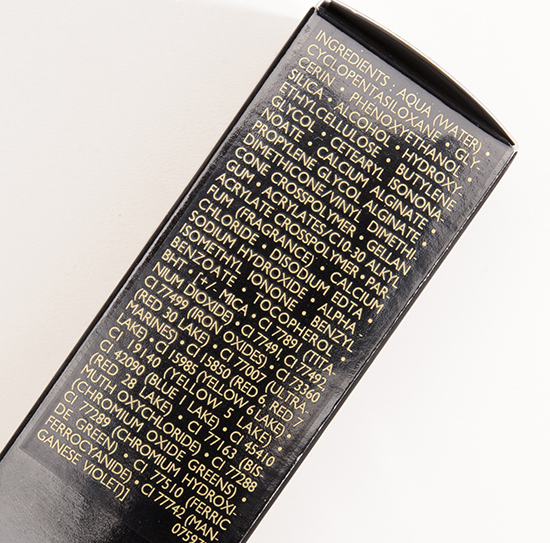 INGREDIENTS : AQUA (WATER) •
CYCLOPENTASILOXANE • GLY-
CERIN • PHENOXYETHANOL •
SILICA • ALCOHOL • HYDROXY-
ETHYLCELLULOSE • BUTYLENE
GLYCOL • CETEARYL ISONONA-
NOATE • CALCIUM ALGINATE •
PROPYLENE GLYCOL ALGINATE •
DIMETHICONE/VINYL DIMETHI-
CONE CROSSPOLYMER • GELLAN
GUM • ACRYLATES/C10-30 ALKYL
ACRYLATE CROSSPOLYMER • PAR-
FUM (FRAGRANCE) • CALCIUM
CHLORIDE • DISODIUM EDTA •
SODIUM HYDROXIDE • ALPHA-
ISOMETHYL IONONE • BENZYL
BENZOATE • TOCOPHEROL •
BHT • [+/- MICA • CI 77891 (TITA-
NIUM DIOXIDE) • CI 77491, CI 77492,
CI 77499 (IRON OXIDES) • CI 73360
(RED 30 LAKE) • CI 77007 (ULTRA-
MARINES) • CI 15850 (RED 6, RED 7
LAKE) • CI 15985 (YELLOW 6 LAKE) •
CI 19140 (YELLOW 5 LAKE) • CI 45410
(RED 28 LAKE) • CI 77163 (BIS-
CI 42090 (BLUE 1 LAKE) •
MUTH OXYCHLORIDE) • CI 77288
(CHROMIUM OXIDE GREENS) •
CI 77289 (CHROMIUM HYDROXI-
DE GREEN) • CI 77510 (FERRIC
FERROCYANIDE) • CI 77742 (MAN-
GANESE VIOLET)]